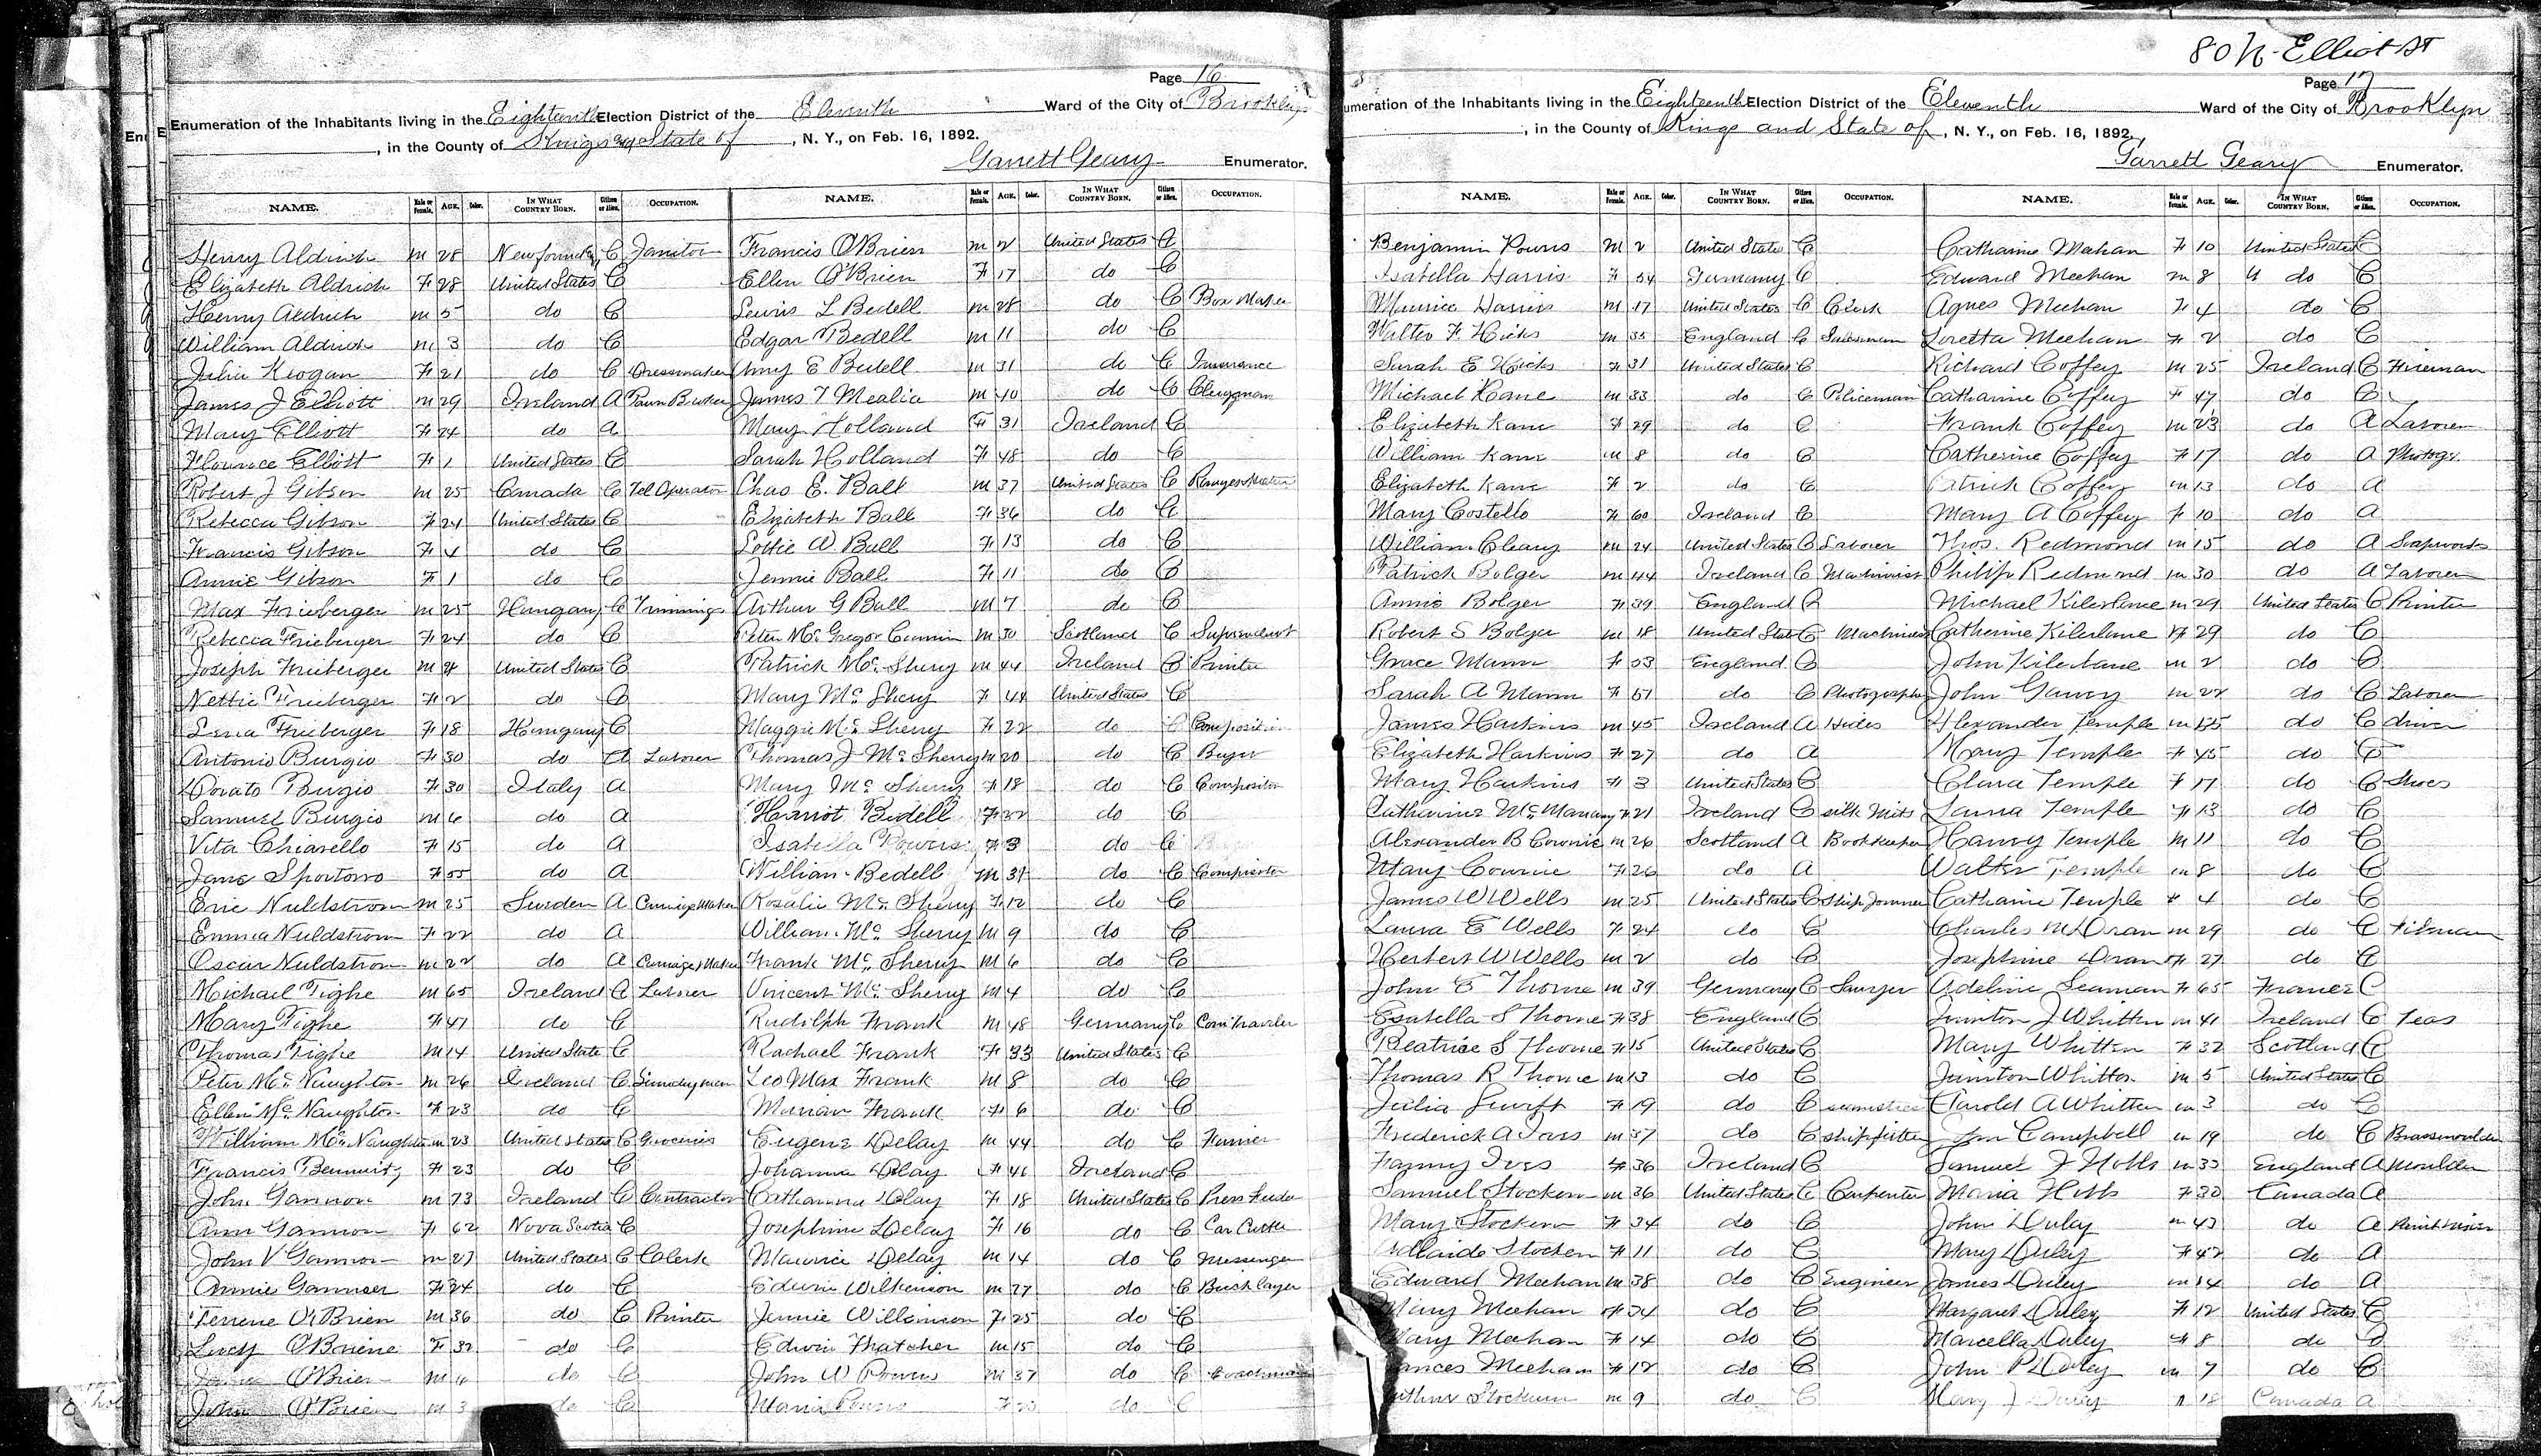 80 N. Elliot St
Page 16
Enumeration of the Inhabitants living in the Eighteenth Election District of the Eleventh Ward of the City of Brooklyn
, in the County of Kings and State of , N. Y., on Feb. 16, 1892.
Garrett Geary Enumerator.
NAME. Male or Female. AGE. Color. IN WHAT COUNTRY BORN. Citizen or Alien. OCCUPATION. NAME. Male or Female. AGE. Color. IN WHAT COUNTRY BORN. Citizen or Alien. OCCUPATION.
Henry Aldrich m 28 C Janitor Francis O'Brien m 2 United States C
Elizabeth Aldrich F 28 United States C Ellen O'Brien F 17 do C
Henry Aldrich m 5 do C Lewis L Bedell m 28 do C Box Maker
William Aldrich m 3 do C Edgar Bedell m 11 do C
Julia Keogan F 21 do C Dressmaker Amy E Bedell m 31 do C Insurance
James J Elliott m 29 Ireland A Pawn Broker James T Mealia m 40 do C Clergyman
Mary Elliott F 24 do A Mary Holland F 31 Ireland C
Florence Elliott F 1 United States C Sarah Holland F 48 do C
Robert J Gibson m 25 Canada C Tel Operator Chas E. Ball m 37 United States C
Rebecca Gibson F 24 United States C Elizabeth Ball F 36 do C
Francis Gibson F 4 do C Lottie W Ball F 13 do C
Annie Gibson F 1 do C Jennie Ball F 11 do C
Max Frieberger m 25 Hungary C Trimmings Arthur G Ball m 7 do C
Rebecca Frieberger F 24 do C Peter McGregor m 30 Scotland C
Joseph Frieberger m 4 United States C Patrick Mc Shery m 44 Ireland C Printer
Nettie Frieberger F 2 do C Mary Mc Shery F 44 United States C
Lena Frieberger F 18 Hungary C Maggie Mc Sherry F 22 do C
Antonio Burgio F 30 do A Laborer Thomas J Mc Sherry m 20 do C Buyer
Burgio F 30 Italy A Mary Mc Sherry F 18 do C Compositor
Samuel Burgio m 6 do A Harriot Bedell F 22 do C
Vita Chiarello F 15 do A Isabella Powers F 3 do C
Jane F 55 do A William Bedell m 31 do C Compositor
Eric Nuldstrom m 25 Sweden A Carriage Maker Rosalie Mc Sherry F 12 do C
Emma Nuldstrom F 22 do A William Mc Sherry m 9 do C
Oscar Nuldstrom m 22 do A Carriage Maker Frank Mc Sherry m 6 do C
Michael Tighe m 65 Ireland C Laborer Vincent Mc Sherry m 4 do C
Mary Tighe F 47 do C Rudolph Frank m 48 Germany C Com Traveler
Thomas Tighe m 14 United State C Rachael Frank F 33 United States C
Peter Mc Naughton m 26 Ireland C Leo Max Frank m 8 do C
Ellen Mc Naughton F 23 do C Marian Frank F 6 do C
William Mc Naughton m 23 United States C Groceries Eugene Delay m 44 do C Furrier
Francis F 23 do C Johanna Delay F 46 Ireland C
John Gannon m 73 Ireland C Contractor Catharine Delay F 18 United States C Press Feeder
Ann Gannon F 62 Nova Scotia C Josephine Delay F 16 do C
John V Gannon m 27 United States C Clerk Maurice Delay m 14 do C Messenger
Annie Gannon F 24 do C Edwin Wilkenson m 27 do C Bricklayer
O'Brien m 36 do C Printer Jennie Wilkinson F 25 do C
Lucy O'Briene F 32 do C Edwin Thatcher m 15 do C
O'Brien m do C John W Powers m 37 do C Coachman
John O'Brien m 3 do C Maria Powers F do C
Page 17
Enumeration of the Inhabitants living in the Eighteenth Election District of the Eleventh Ward of the City of Brooklyn
, in the County of Kings and State of , N. Y., on Feb. 16, 1892.
Garrett Geary Enumerator.
NAME. Male or Female. AGE. Color. IN WHAT COUNTRY BORN. Citizen or Alien. OCCUPATION. NAME. Male or Female. AGE. Color. IN WHAT COUNTRY BORN. Citizen or Alien. OCCUPATION.
Benjamin Powers m 2 United States C Catharine Mahan F 10 United States C
Isabella Harris F 54 Germany C Edward Meehan m 8 do C
Maurice Harris m 17 United States C Clerk Agnes Meehan F 4 do C
Walter F. Hicks m 35 England C Salesman Loretta Meehan F 2 do C
Sarah E Hicks F 31 United States C Richard Coffey m 25 Ireland C Fireman
Michael Kane m 33 do C Policeman Catharine Coffey F 47 do C
Elizabeth Kane F 29 do C Frank Coffey m 23 do A Laborer
William Kane m 8 do C Catherine Coffey F 17 do A Photogr.
Elizabeth Kane F 2 do C Patrick Coffey m 13 do A
Mary Costello F 60 Ireland C Mary A Coffey F 10 do A
William Cleary m 24 United States C Laborer Thos. Redmond m 15 do A Soapworks
Patrick Bolger m 44 Ireland C Machinist Philip Redmond m 30 do A Laborer
Annie Bolger F 39 England C Michael Kilerlane m 29 United States C Printer
Robert S Bolger m 18 United States C Machinist Catherine Kilerlane F 29 do C
Grace Mann F 53 England C John Kilerlane m 2 do C
Sarah A Mann F 51 do C Photographer John Garvey m 22 do C Laborer
James Harkins m 45 Ireland A Hides Alexander Temple m do C driver
Elizabeth Harkins F 27 do A Mary Temple F 45 do C
Mary Harkins F 3 United States C Clara Temple F 17 do C Shoes
Catharine F 21 Ireland C silk Mits Laura Temple F 13 do C
Alexander B Cownie m 26 Scotland A Bookkeeper Harry Temple m 11 do C
Mary Cownie F 26 do A Walter Temple m 8 do C
James W Wells m 25 United States C Ship Joiner Catharine Temple F 4 do C
Laura E Wells F 24 do C Charles M Doran m 29 do C
Herbert W Wells m 2 do C Josephine Doran F 27 do C
John E Thorne m 39 Germany C Sawyer Adeline Seaman F 65 France C
Esabella S Thorne F 38 England C J Whitten m 41 Ireland C Teas
Beatrice S Thorne F 15 United States C Mary Whitten F 32 Scotland C
Thomas R Thorne m 13 do C Whitten m 5 United States C
Julia Swift F 19 do C Harold A Whitten m 3 do C
Frederick A Ives m 37 do C shipfitter Campbell m 19 do C Brassmoulder
Fanny Ives F 36 Ireland C Samuel J Hobbs m 33 England A Moulder
Samuel Stockern m 36 United States C Carpenter Maria Hobbs F 30 Canada A
Mary Stockern F 34 do C John Duley m 43 do A
Adlaide Stocken F 11 do C Mary Duley F 42 do A
Edward Meehan m 38 do C Engineer James Duley m 14 do A
Mary Meehan F 34 do C Margaret Duley F 12 United States C
Mary Meehan F 14 do C Marcella Duley F 8 do C
Frances Meehan F 12 do C John P Duley m 7 do C
Stockum m 9 do C Mary J Duley F 18 Canada A